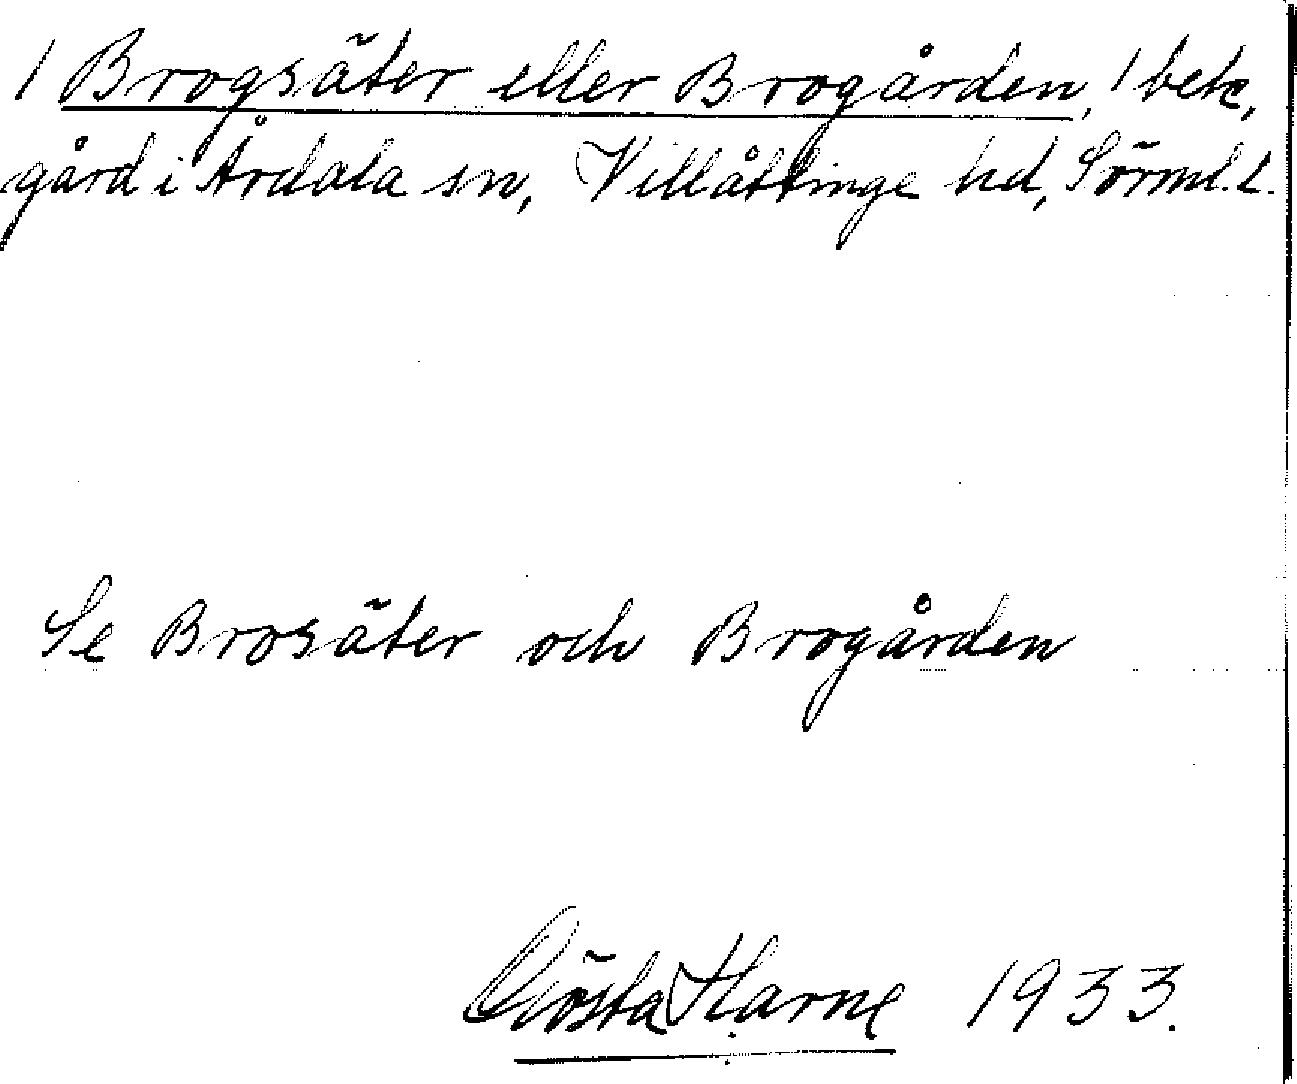 / Brogsäter eller Brogården, / bek,
gård i Årdala sn, Villåttinge hd, Sörml. l.
Se Brosäter och Brogården
Gösta Harne 1933.